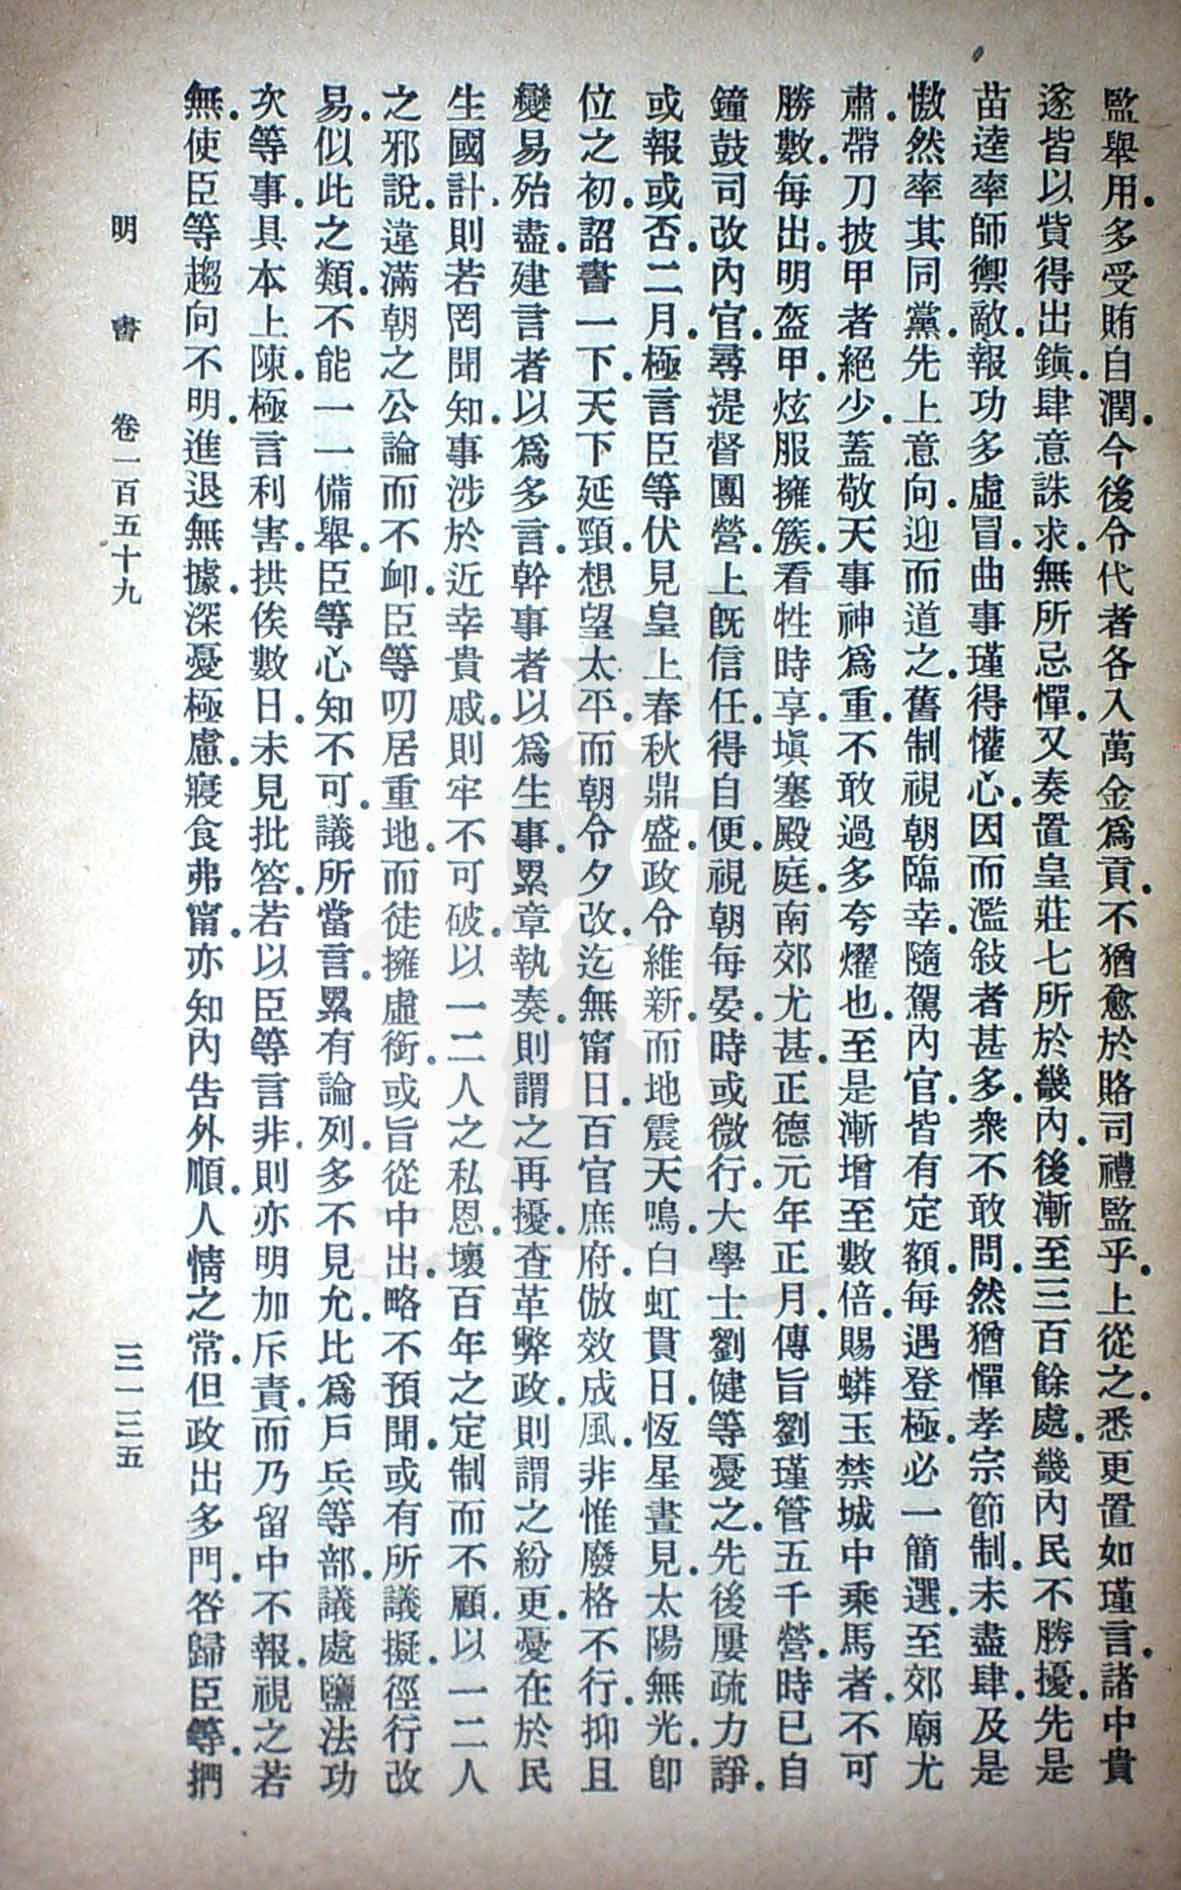 監舉用．多受賄自潤．今後令代者各入萬金爲貢．不猶愈於賂司禮監乎．上從之．悉更置如瑾言．諸中貴
遂皆以貲得出鎭．肆意誅求．無所忌憚．又奏置皇莊七所於畿內．後漸至三百餘處．畿內民不勝擾．先是
苗逵率師禦敵．報功多虛冒．曲事瑾得懽心．因而濫敍者甚多．衆不敢問．然猶憚孝宗節制．未盡肆．及是
傲然率其同黨．先上意向．迎而道之．舊制視朝臨幸．隨駕內官．皆有定額．每遇登極．必一簡選．至郊廟尤
肅．帶刀披甲者絕少．蓋敬天事神爲重．不敢過多夸燿也．至是漸增至數倍．賜蟒玉禁城中乘馬者．不可
勝數．每出．明盔甲．炫服擁簇．看牲時享．塡塞殿庭．南郊尤甚．正德元年正月．傳旨劉瑾管五千營．時已自
鐘鼓司改內官．尋提督團營．上旣信任．得自便．視朝每晏．時或微行．大學士劉健等憂之．先後屢疏力諍．
或報或否．二月．極言臣等伏見皇上春秋鼎盛．政令維新．而地震天鳴．白虹貫日．恆星晝見．太陽無光．卽
位之初．詔書一下．天下延頸．想望太平．而朝令夕改．迄無甯日．百官庶府．倣效成風．非惟廢格不行．抑且
變易殆盡．建言者以爲多言．幹事者以爲生事．累章執奏．則謂之再擾．查革弊政．則謂之紛更．憂在於民
生國計．則若罔聞知．事涉於近幸貴戚．則牢不可破．以一二人之私恩．壞百年之定制而不顧．以一二人
之邪說．違滿朝之公論而不卹．臣等叨居重地．而徒擁虛銜．或旨從中出．略不預聞．或有所議擬．徑行改
易．似此之類．不能一一備舉．臣等心知不可．議所當言．累有論列．多不見允．比爲戶兵等部．議處鹽法功
次等事．具本上陳．極言利害．拱俟數日．未見批答．若以臣等言非．則亦明加斥責．而乃留中不報．視之若
無．使臣等趨向不明．進退無據．深憂極慮．寢食弗甯．亦知內吿外順．人情之常．但政出多門．咎歸臣等．捫
明書　卷一百五十九　三一三五